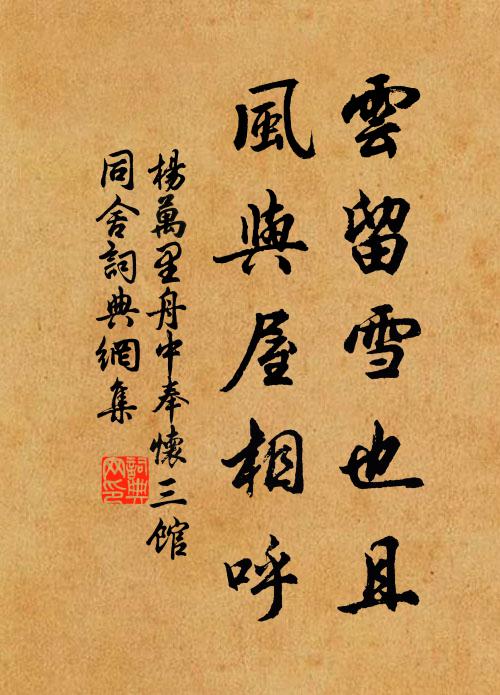 雲留雪也且
風與屋相呼
楊萬里舟中奉懷三館
同舍詞典網集
詞典网印